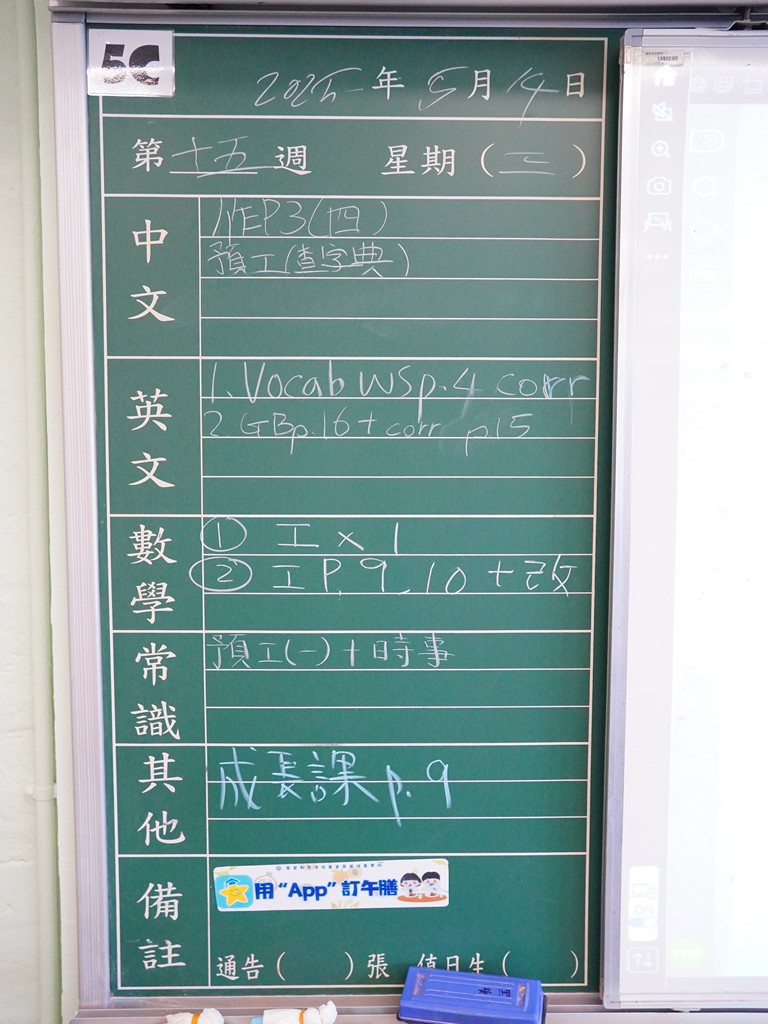 5C
2025年5月14日
第十五週 星期(三)
中文
1NEP3(四)
預工(查字典)
英文
1. Vocab WSp.4 corr
2. GBp.16 + corr p.15
數學
① 工 x 1
② 工 P.9_10 + 改
常識
預工(一)+時事
其他
成長課 p.9
備註
用“App”訂午膳
通告( )張 值日生( )
ON